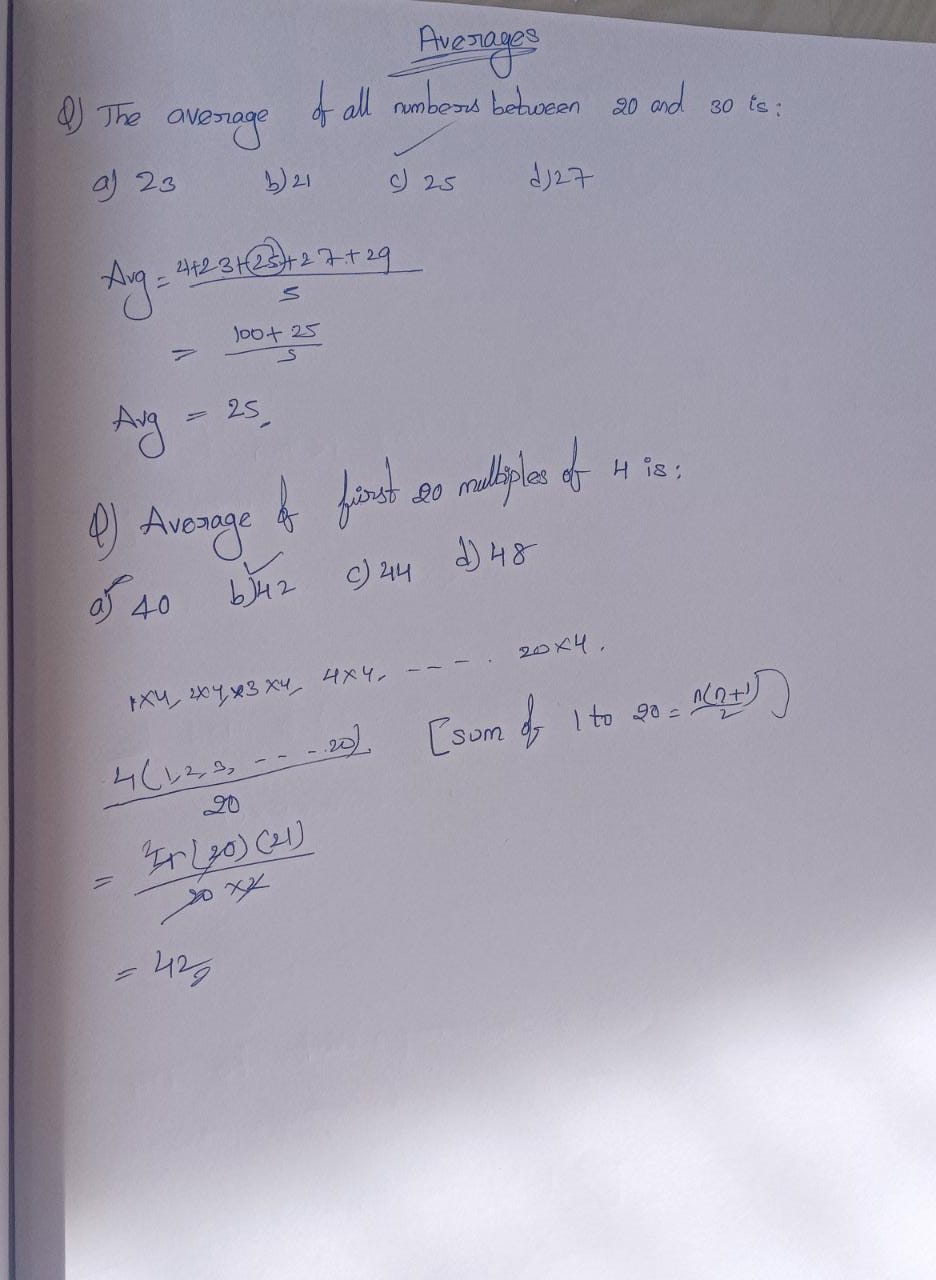 Averages
Q) The average of all numbers between 20 and 30 is:
a) 23 b) 21 c) 25 d) 27
Avg = 4+23+25+27+29
5
= 100+25
5
Avg = 25
Q) Average of first 20 multiples of 4 is:
a) 40 b) 42 c) 44 d) 48
1×4, 2×4, 3×4, 4×4, ---- . 20×4.
4(1,2,3, --- -20) [sum of 1 to 20 = n(n+1)/2]
20
= (20)(21)
20×2
= 42